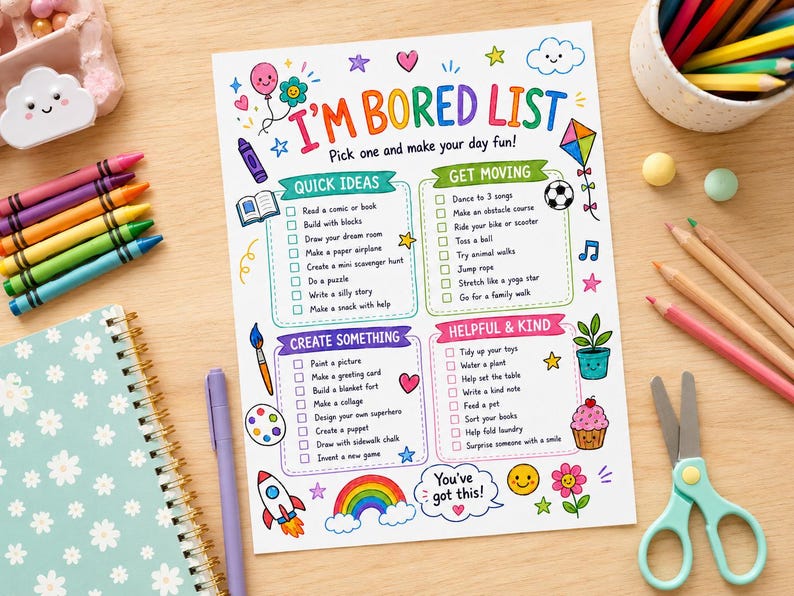 I'M BORED LIST
Pick one and make your day fun!
QUICK IDEAS
Read a comic or book
Build with blocks
Draw your dream room
Make a paper airplane
Create a mini scavenger hunt
Do a puzzle
Write a silly story
Make a snack with help
GET MOVING
Dance to 3 songs
Make an obstacle course
Ride your bike or scooter
Toss a ball
Try animal walks
Jump rope
Stretch like a yoga star
Go for a family walk
CREATE SOMETHING
Paint a picture
Make a greeting card
Build a blanket fort
Make a collage
Design your own superhero
Create a puppet
Draw with sidewalk chalk
Invent a new game
HELPFUL & KIND
Tidy up your toys
Water a plant
Help set the table
Write a kind note
Feed a pet
Sort your books
Help fold laundry
Surprise someone with a smile
You've
got this!